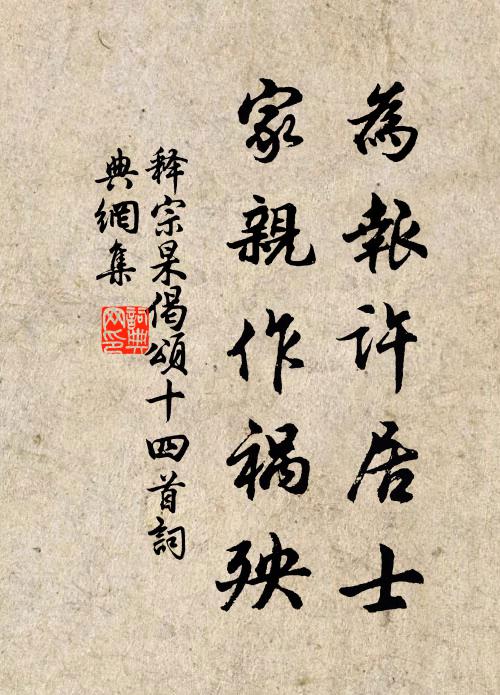 為報許居士
家親作禍殃
释宗杲偈頌十四首詞
典網集
詞典網印